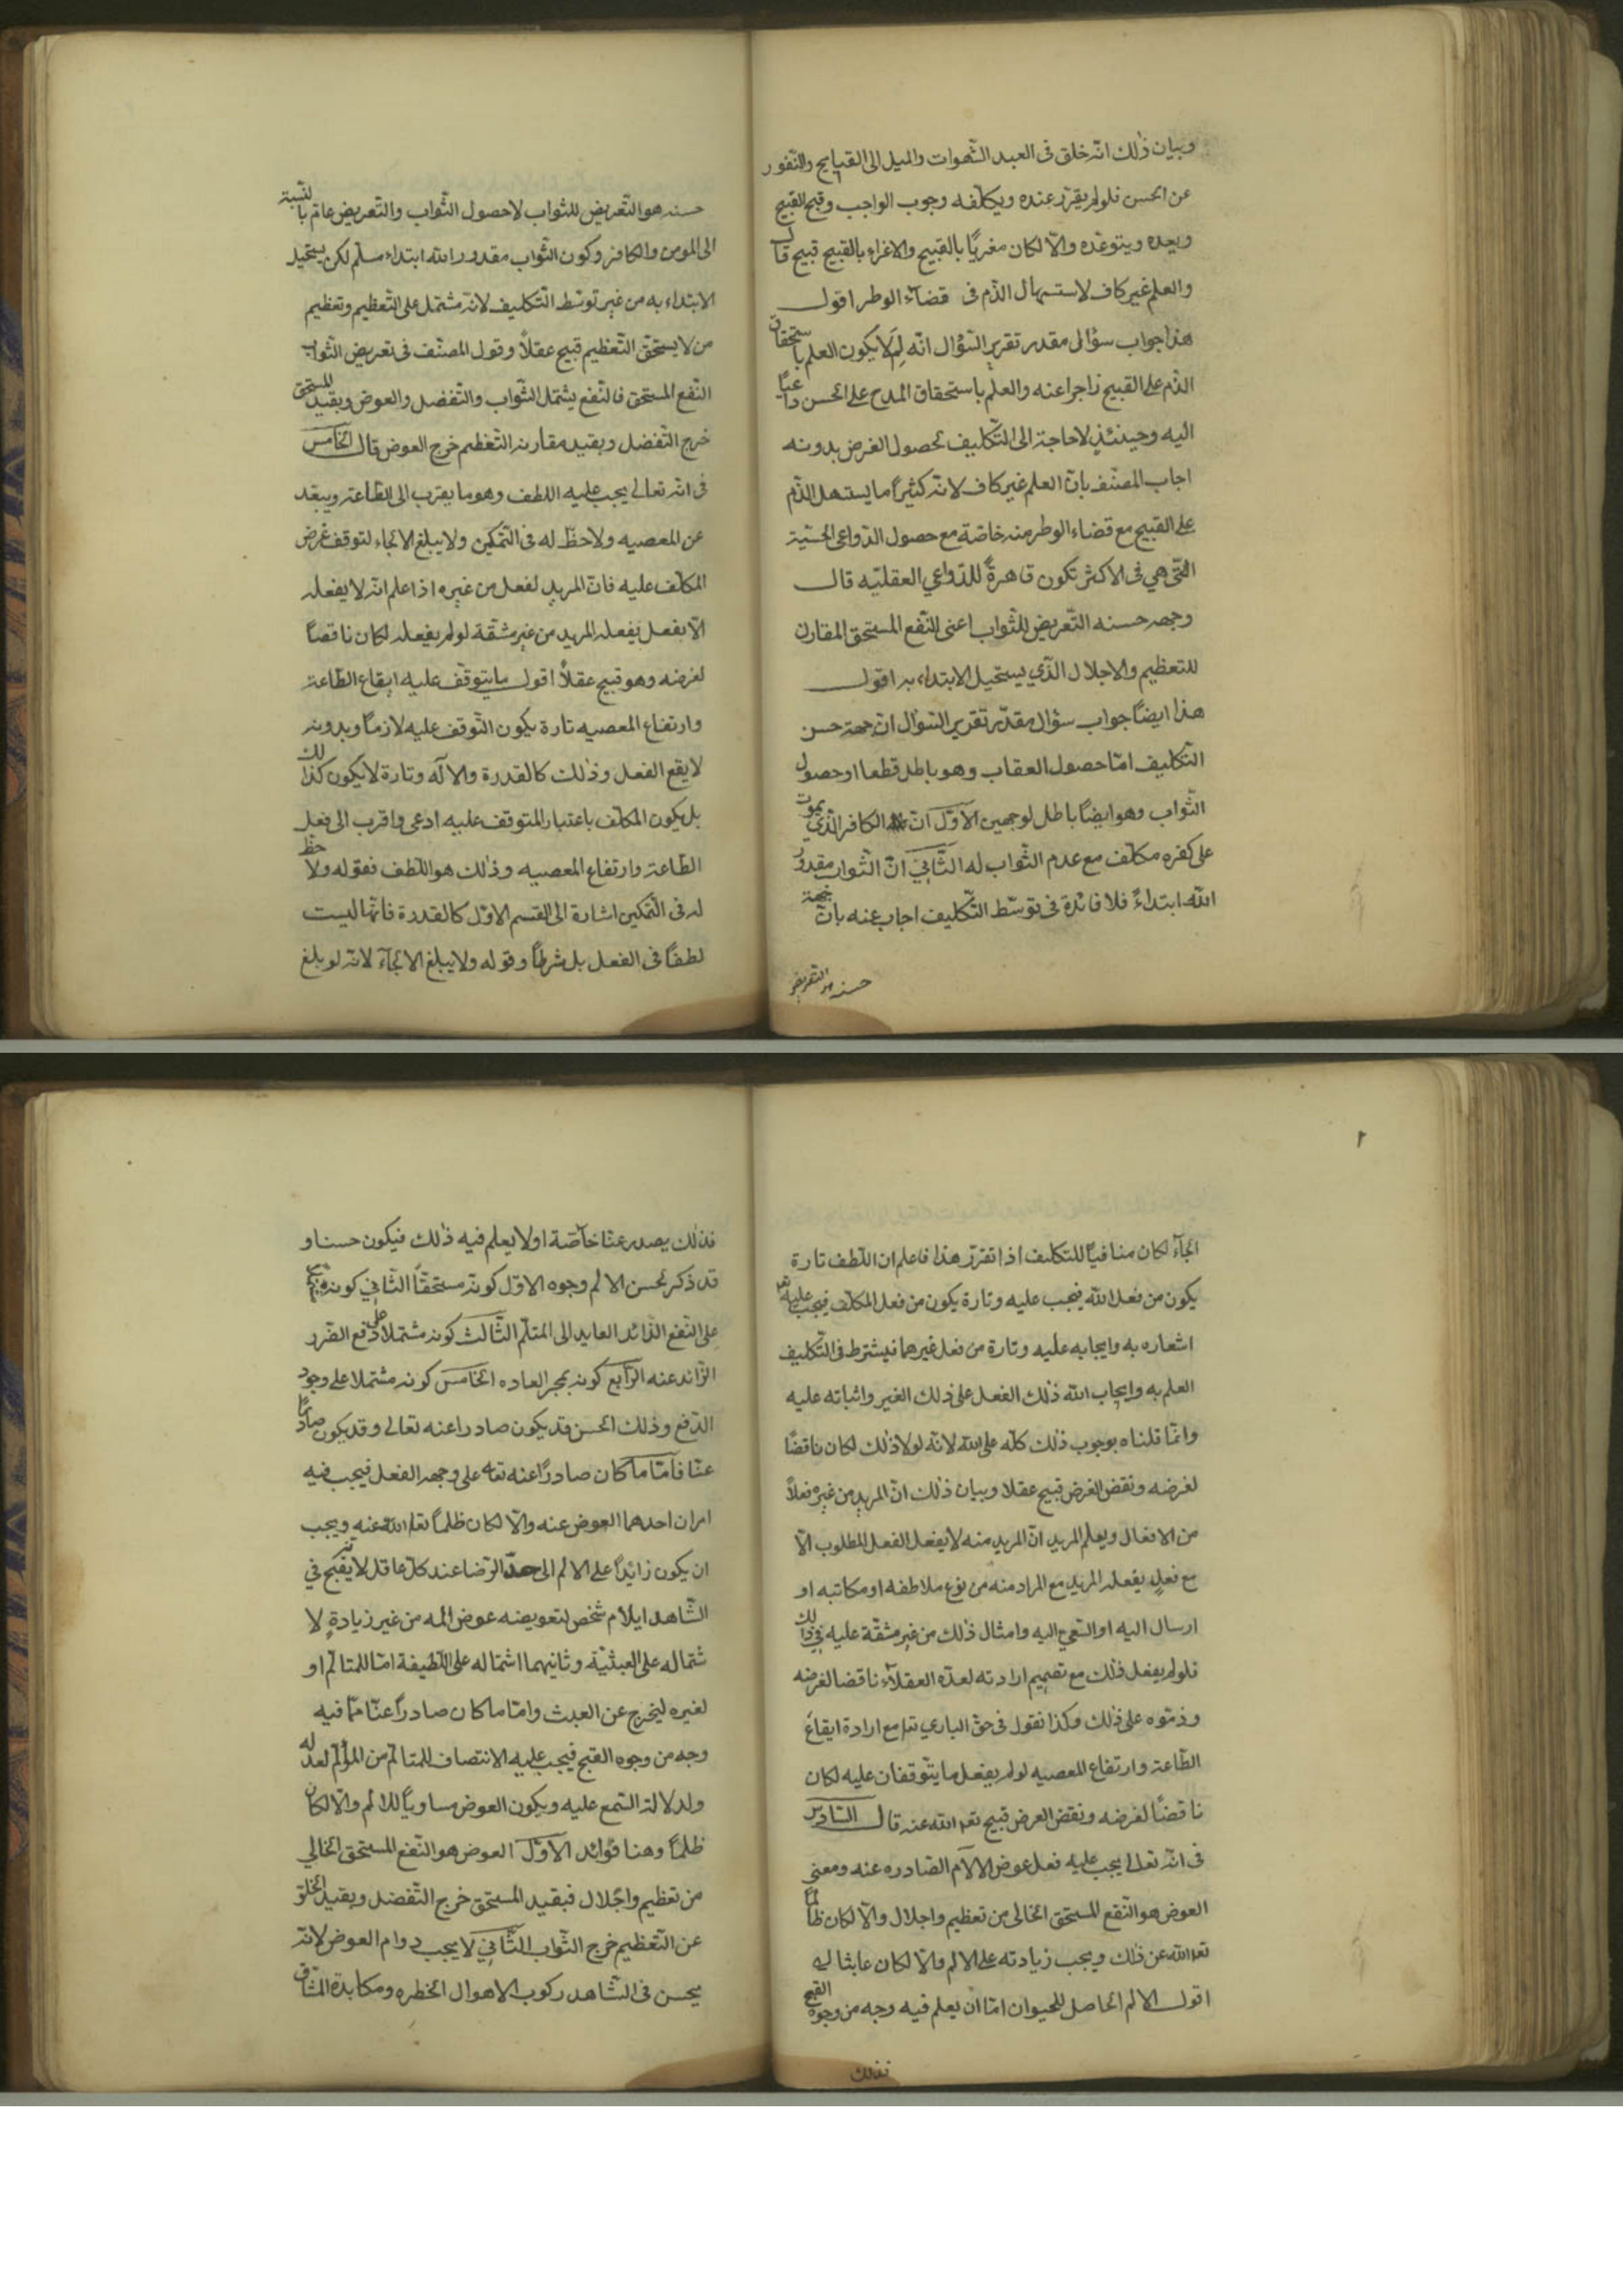 وبيان ذلك انه خلق في العبد الشهوات والميل الى القبايح والنفور
عن الحسن فلو لم يقرر عنده ويكلفه وجوب الواجب وقبح القبيح
ويعده ويتوعده والا لكان مغريا بالقبيح والاغراء بالقبيح قبيح قال
والعلم غير كاف لاستسهال الذم في قضاء الوطر اقول
هذا جواب سؤال مقدر تقرير السؤال انه لم لا يكون العلم باستحقاق
الذم على القبيح زاجرا عنه والعلم باستحقاق المدح على الحسن داعيا
اليه وحينئذ لا حاجة الى التكليف لحصول الغرض بدونه
اجاب المصنف بان العلم غير كاف لانه كثيرا ما يستسهل الذم
على القبيح مع قضاء الوطر منه خاصة مع حصول الدواعي الحسية
التي هي في الاكثر تكون قاهرة للدواعي العقلية قال
وجهه حسنه التعريض للثواب اعني النفع المستحق المقارن
للتعظيم والاجلال الذي يستحيل الابتداء به اقول
هذا ايضا جواب سؤال مقدر تقرير السؤال ان جهة حسن
التكليف اما حصول العقاب وهو باطل قطعا او حصول
الثواب وهو ايضا باطل لوجهين الاول ان الكافر الذي يموت
على كفره مكلف مع عدم الثواب له الثاني ان الثواب مقدور
الله ابتداء فلا فائدة في توسط التكليف اجاب عنه بان جهة
حسنه هو التعريض
حسنه هو التعريض للثواب لا حصول الثواب والتعريض عام بالنسبة
الى المومن والكافر وكون الثواب مقدور الله ابتداء مسلم لكن يستحيل
الابتداء به من غير توسط التكليف لانه مشتمل على التعظيم وتعظيم
من لا يستحق التعظيم قبيح عقلا وقول المصنف في تعريض الثواب
النفع المستحق فالنفع يشتمل الثواب والتفضل والعوض وبقيد المستحق
خرج التفضل وبقيد مقارنه التعظيم خرج العوض قال الخامس
في انه تعالى يجب عليه اللطف وهو ما يقرب الى الطاعة ويبعد
عن المعصيه ولا حظ له في التمكين ولا يبلغ الالجاء لتوقف غرض
المكلف عليه فان المريد لفعل من غيره اذا علم انه لا يفعله
الا بفعل يفعله المريد من غير مشقة لو لم يفعله لكان ناقضا
لغرضه وهو قبيح عقلا اقول ما يتوقف عليه ايقاع الطاعة
وارتفاع المعصيه تارة يكون التوقف عليه لازما وبدونه
لا يقع الفعل وذلك كالقدرة والاله وتارة لا يكون كذلك
بل يكون المكلف باعتبار المتوقف عليه ادعى واقرب الى فعل
الطاعة وارتفاع المعصيه وذلك هو اللطف فقوله ولا حظ
له في التمكين اشارة الى القسم الاول كالقدرة فانها ليست
لطفا في الفعل بل شرطا وقوله ولا يبلغ الالجاء لانه لو بلغ
٢
الجاء لكان منافيا للتكليف اذا تقرر هذا فاعلم ان اللطف تارة
يكون من فعل الله فيجب عليه وتارة يكون من فعل المكلف فيجب عليه تعا
اشعاره به وايجابه عليه وتارة من فعل غيرهما فيشترط في التكليف
العلم به وايجاب الله ذلك الفعل على ذلك الغير واثباته عليه
وانما قلناه بوجوب ذلك كله على الله لانه لولا ذلك لكان ناقضا
لغرضه ونقض الغرض قبيح عقلا وبيان ذلك ان المريد من غيره فعلا
من الافعال ويعلم المريد ان المريد منه لا يفعل الفعل المطلوب الا
مع فعل يفعله المريد مع المراد منه من نوع ملاطفه او مكاتبه او
ارسال اليه او السعي اليه وامثال ذلك من غير مشقة عليه في ذلك
فلو لم يفعل ذلك مع تصميم ارادته لعده العقلاء ناقضا لغرضه
وذموه على ذلك وكذا نقول في حق الباري تع مع ارادة ايقاع
الطاعة وارتفاع المعصيه لو لم يفعل ما يتوقفان عليه لكان
ناقضا لغرضه ونقض الغرض قبيح تع الله عنه قال السادس
في انه تعالى يجب عليه فعل عوض الالام الصادره عنه ومعنى
العوض هو النفع المستحق الخالي من تعظيم واجلال والا لكان ظالما
تع الله عن ذلك ويجب زيادته على الالم والا لكان عابثا
اقول الالم الحاصل للحيوان اما ان يعلم فيه وجه من وجوه القبح
فذلك
فذلك يصدر عنا خاصة او لا يعلم فيه ذلك فيكون حسنا و
قد ذكر لحسن الالم وجوه الاول كونه مستحقا الثاني كونه
على النفع الزائد العايد الى المتالم الثالث كونه مشتملا على دفع الضرر
الزائد عنه الرابع كونه بمجر العاده الخامس كونه مشتملا على وجود
الدفع وذلك الحسن قد يكون صادرا عنه تعالى وقد يكون صادرا
عنا فاما ما كان صادرا عنه تعا على وجه الفعل فيجب فيه
امران احدهما العوض عنه والا لكان ظلما تع الله عنه ويجب
ان يكون زائدا على الالم الى حد الرضا عند كل عاقل لانه يقبح في
الشاهد ايلام شخص لتعويضه عوض المه من غير زيادة لا
شتماله على العبثية وثانيهما اشتماله على اللطيفة اما للمتالم او
لغيره ليخرج عن العبث واما ما كان صادرا عنا مما فيه
وجه من وجوه القبح فيجب عليه الانتصاف للمتالم من المؤلم لعدله
ولدلالة السمع عليه ويكون العوض مساويا للالم والا لكان
ظلما وهنا فوائد الاول العوض هو النفع المستحق الخالي
من تعظيم واجلال فبقيد المستحق خرج التفضل وبقيد الخلو
عن التعظيم خرج الثواب الثاني لا يجب دوام العوض لانه
يحسن في الشاهد ركوب الاهوال الخطره ومكابدة المشاق